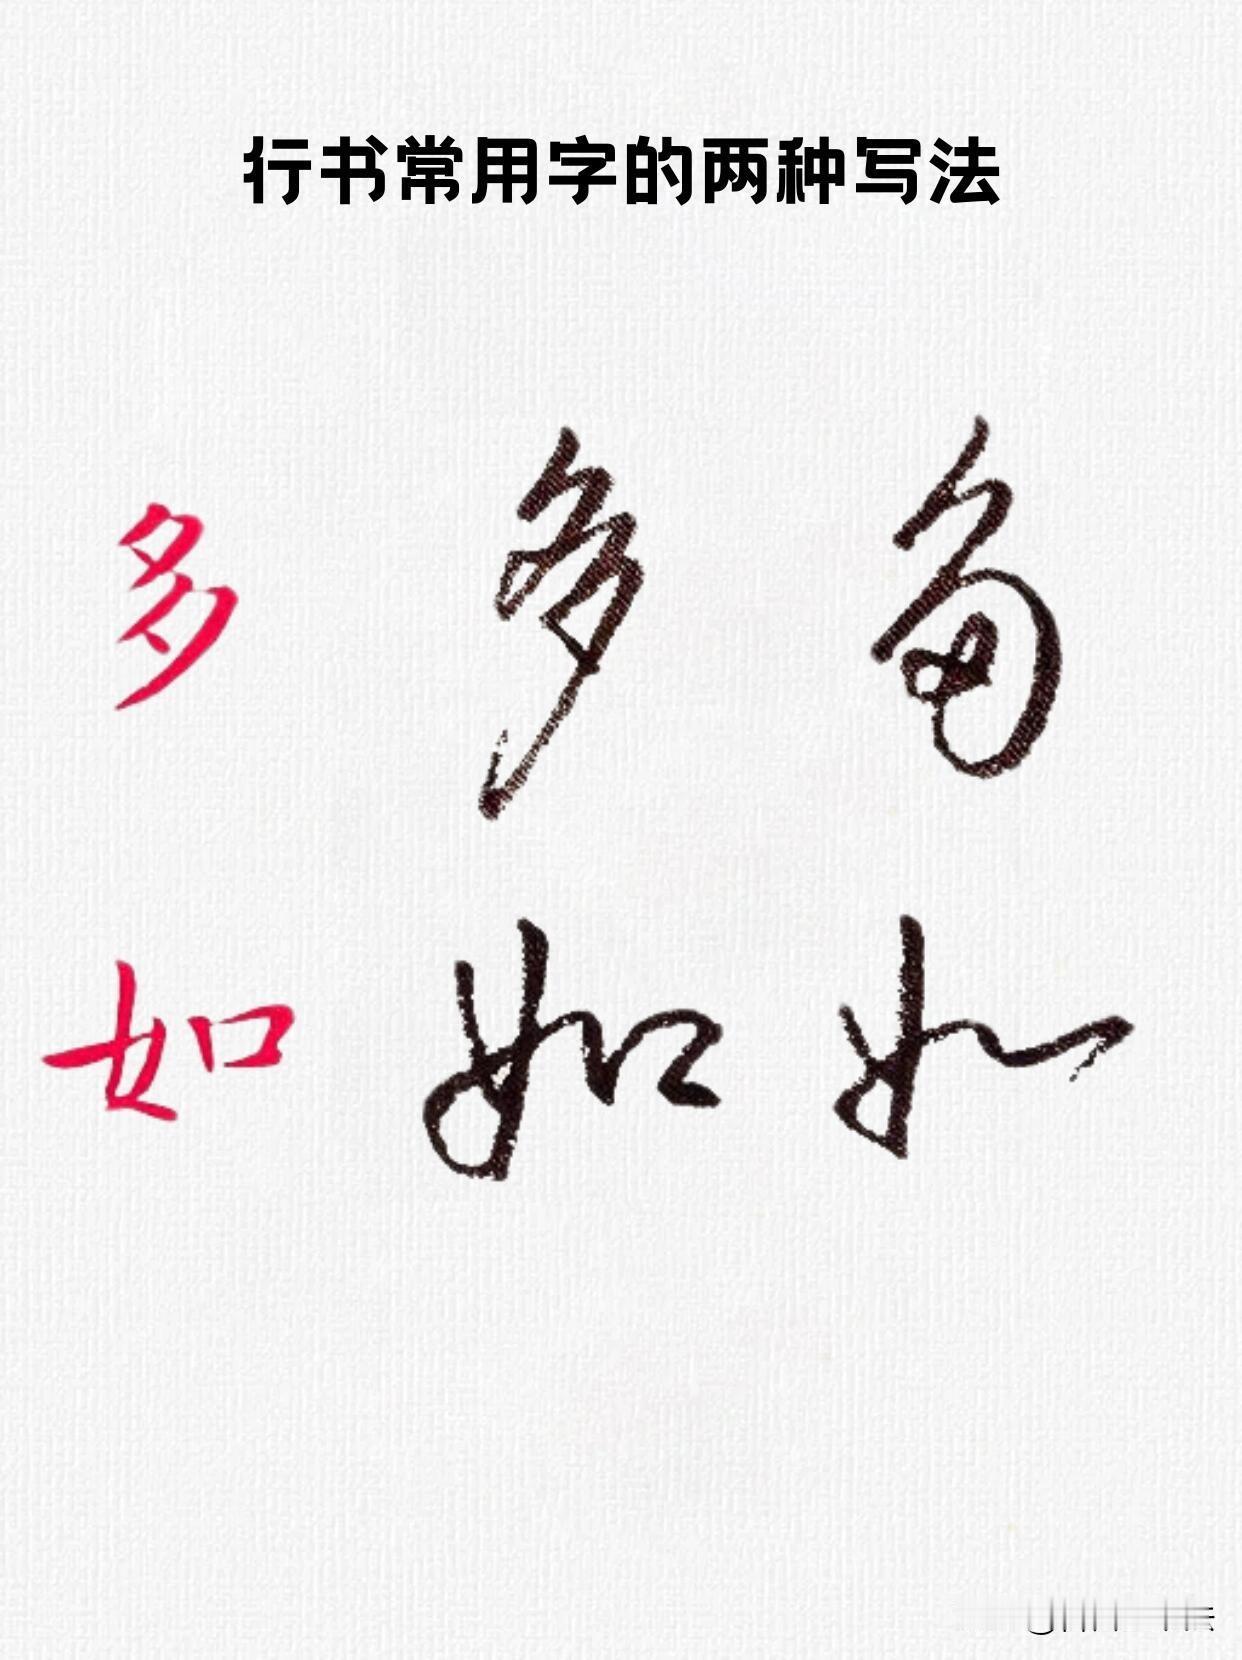 行书常用字的两种写法
多 多 多
如 如 如